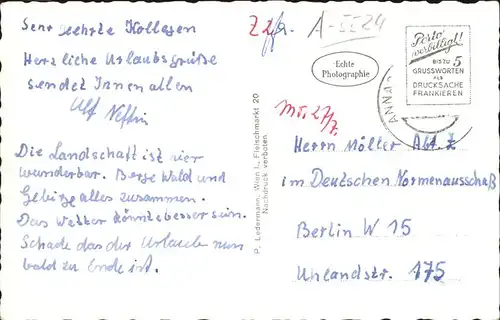 Sehr geehrte Kollegen
Herzliche Urlaubsgrüße
sendet Innen allen
Ulf
Die Landschaft ist hier
wunderbar. Berge Wald und
Gebirge alles zusammen.
Das Wetter könnte besser sein.
Schade das der Urlaub nun
bald zu Ende ist.
P. Ledermann, Wien I., Fleischmarkt 20
Nachdruck verboten
A-5524
Echte
Photographie
Porto
verbilligt!
BIS ZU 5
GRUSSWORTEN
ALS
DRUCKSACHE
FRANKIEREN
ANNA
Herrn Möller Abt. Z
im Deutschen Normenausschuß
Berlin W 15
Uhlandstr. 175